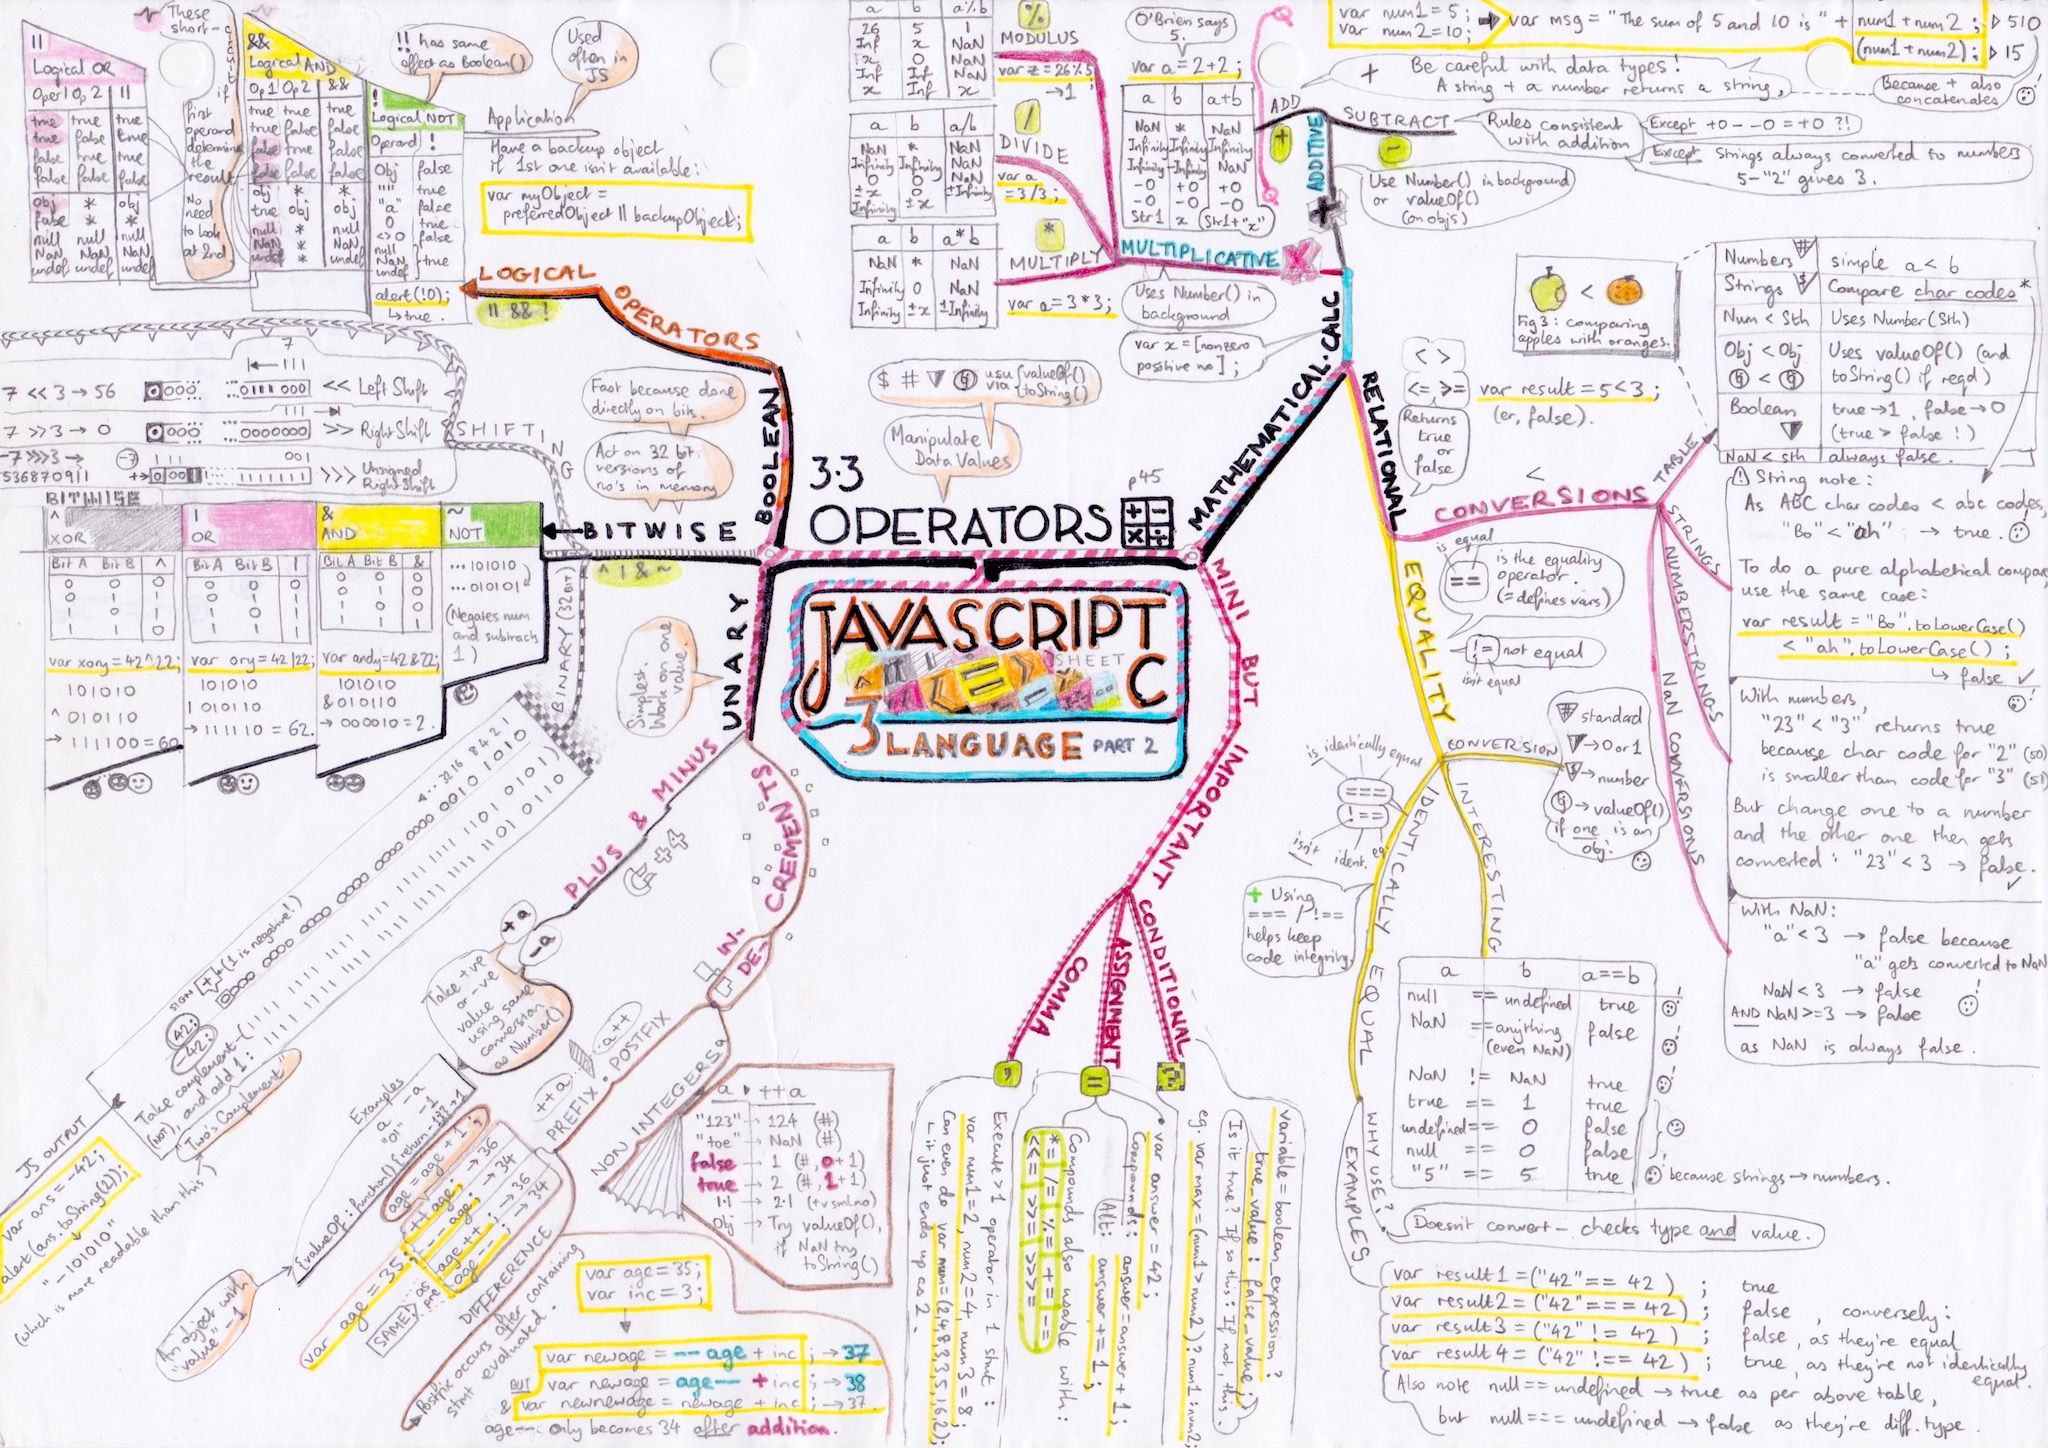 These short-circuit if first operand determines the result
No need to look at 2nd
||
Logical OR
Oper1 Op 2 ||
true true true
true false true
false true true
false false false
obj * obj
false * *
null null null
NaN NaN NaN
undef undef undef
&&
Logical AND
Op 1 Op 2 &&
true true true
true false false
false true false
false false false
obj * *
true obj obj
null * null
NaN * NaN
undef * undef
!
Logical NOT
Operand !
Obj false
"" true
"a" false
0 true
<>0 false
null
NaN } true
undef
alert(!0);
↳ true.
!! has same
effect as Boolean()
Used
often in
JS
Application
Have a backup object
if 1st one isn't available:
var myObject =
preferredObject || backupObject;
LOGICAL OPERATORS
|| && !
BOOLEAN
a b a%b
26 5 1
Inf x NaN
x 0 NaN
Inf Inf NaN
x Inf x
%
MODULUS
var z = 26%5;
→1
a b a/b
NaN * NaN
Infinity Infinity NaN
0 0 NaN
±x 0 ±Infinity
Infinity ±x
/
DIVIDE
var a
= 3/3;
a b a*b
NaN * NaN
Infinity 0 NaN
Infinity ±x ±Infinity
*
MULTIPLY
var a = 3*3;
MULTIPLICATIVE X
Uses Number() in
background
var x = [nonzero
positive no];
O'Brien says
5.
var a = 2+2;
a b a+b
NaN * NaN
Infinity Infinity Infinity
Infinity -Infinity NaN
-0 +0 +0
-0 -0 -0
Str1 x (Str1+"x")
ADD
+
ADDITIVE
SUBTRACT
-
var num1 = 5;
var num2 = 10;
var msg = "The sum of 5 and 10 is " + num1+num2; ▷ 510
(num1+num2); ▷ 15
+ Be careful with data types!
A string + a number returns a string,
Because + also
concatenates
Rules consistent
with addition
Except +0 - -0 = +0 ?!
Except Strings always converted to numbers
5-"2" gives 3.
Use Number() in background
or valueOf()
(on objs)
MATHEMATICAL·CALC
7
7 << 3 → 56
111
<< Left Shift
7 >> 3 → 0
111
>> Right Shift
-7 >>> 3 →
536870911
-7
111 001
>>> Unsigned
Right Shift
SHIFTING
Fast because done
directly on bits.
Act on 32 bit
versions of
no's in memory
$ # usu {valueOf()
via {toString()
Manipulate
Data Values
3.3
OPERATORS
p45
BITWISE
^
XOR
|
OR
&
AND
~
NOT
Bit A Bit B ^
0 0 0
0 1 1
1 0 1
1 1 0
Bit A Bit B |
0 0 0
0 1 1
1 0 1
1 1 1
Bit A Bit B &
0 0 0
0 1 0
1 0 0
1 1 1
...101010
...010101
(Negates num
and subtracts
1)
var xory = 42^22;
101010
^ 010110
→ 111100 = 60
var ory = 42|22;
101010
| 010110
→ 111110 = 62.
var andy = 42&22;
101010
& 010110
→ 000010 = 2.
BITWISE
^ | & ~
BINARY (32BIT)
UNARY
Simplest.
Work on one
value.
JAVASCRIPT
SHEET C
3 LANGUAGE PART 2
<
>
<= >=
Returns
true
or
false
RELATIONAL
var result = 5<3;
(er, false).
<
Fig 3: comparing
apples with oranges.
Numbers simple a<b
Strings Compare char codes*
Num < Sth Uses Number(Sth)
Obj < Obj Uses valueOf() (and
toString() if reqd)
Boolean true→1, false→0
(true > false!)
NaN < sth always false.
<
CONVERSIONS
TABLE
STRINGS
NUMBERSTRINGS
NaN CONVERSIONS
String note:
As ABC char codes < abc codes,
"Bo" < "ah" → true.
To do a pure alphabetical compare,
use the same case:
var result = "Bo".toLowerCase()
< "ah".toLowerCase();
↳ false ✓
With numbers,
"23" < "3" returns true
because char code for "2" (50)
is smaller than code for "3" (51)
But change one to a number
and the other one then gets
converted: "23" < 3 → false.
✓
With NaN:
"a" < 3 → false because
"a" gets converted to NaN
NaN < 3 → false
AND NaN >= 3 → false
as NaN is always false.
EQUALITY
is equal
==
is the equality
operator.
(= defines vars)
!= not equal
isn't equal
CONVERSION
standard
→ 0 or 1
→ number
→ valueOf()
if one is an
obj.
INTERESTING
a b a==b
null == undefined true
NaN == anything false
(even NaN)
NaN != NaN true
true == 1 true
undefined == 0 false
null == 0 false
"5" == 5 true
because strings → numbers.
is identically equal
===
!==
isn't ident. eq.
IDENTICALLY EQUAL
+ Using
=== / !==
helps keep
code integrity.
WHY USE?
Doesn't convert – checks type and value.
EXAMPLES
var result1 = ("42" == 42); true
var result2 = ("42" === 42); false, conversely:
var result3 = ("42" != 42); false, as they're equal
var result4 = ("42" !== 42); true, as they're not identically
equal.
Also note null == undefined → true as per above table,
but null === undefined → false as they're diff. type.
MINI BUT IMPORTANT
COMMA
ASSIGNMENT
CONDITIONAL
,
=
?:
variable = boolean_expression ?
true_value : false_value;
Is it true? If so this : If not, this.
eg. var max = (num1 > num2) ? num1 : num2;
var answer = 42;
Compounds: answer = answer + 1;
Alt: answer += 1;
Compounds also usable with:
*= /= %= += -=
<<= >>= >>>=
Execute >1 operator in 1 stmt:
var num1 = 2, num2 = 4, num3 = 8;
Can even do var num = (2,4,8,3,5,16,2);
it just ends up as 2.
PLUS & MINUS
+4
+a
-a
Take +ve
or -ve
value
using same
conversion
as Number()
Examples
a -a
"01" -1
{valueOf: function(){return
An object with
"value" -1
CREMENTS
IN-
DE-
PREFIX · POSTFIX
++a
a++
age = age + 1;
++age; → 36
--age; → 34
age++; → 36
age--; → 34
var age = 35;
SAME! as pre
DIFFERENCE
Postfix occurs after containing
stmt evaluated.
NON INTEGERS
a ▸ ++a
"123" → 124 (#)
"toe" → NaN (#)
false → 1 (#, 0+1)
true → 2 (#, 1+1)
1.1 → 2.1
Obj → Try valueOf(),
if NaN try
toString()
var age = 35;
var inc = 3;
var newage = --age + inc; → 37
BUT var newage = age-- + inc; → 38
& var newnewage = newage + inc; → 37.
age-- only becomes 34 after addition.
...32 16 8 4 2 1
SIGN + (1 is negative!)
42:
0000 0000 0000 0000 0000 0000 0010 1010
-42:
Take complement
(NOT), and add 1:
1111 1111 1111 1111 1111 1111 1101 0101)
1111 1111 1111 1111 1111 1111 1101 0110
"Two's Complement"
JS OUTPUT
var ans = -42;
alert(ans.toString(2));
"-101010"
(which is more readable than this)